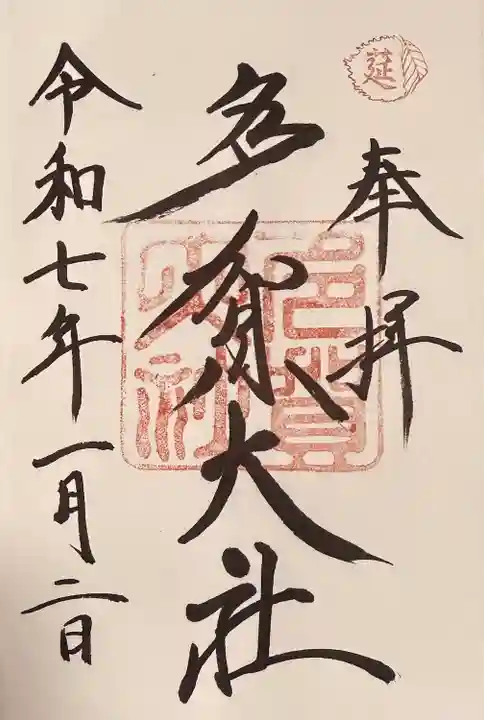 莚
奉拝
多賀大社
令和七年一月二日